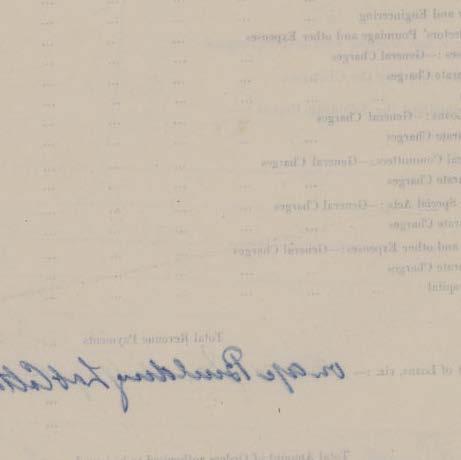 and Engineering
ectors' Poundage and other Expenses
ses :—General Charges
arate Charges
Loans :—General Charges
arate Charges
al Committees.—General Charges
arate Charges
Special Acts :—General Charges
arate Charges
and other Expenses :—General Charges
arate Charges
apital
Total Revenue Payments
of Loans, viz. :—
Building
Total Amount of Orders authorised to be